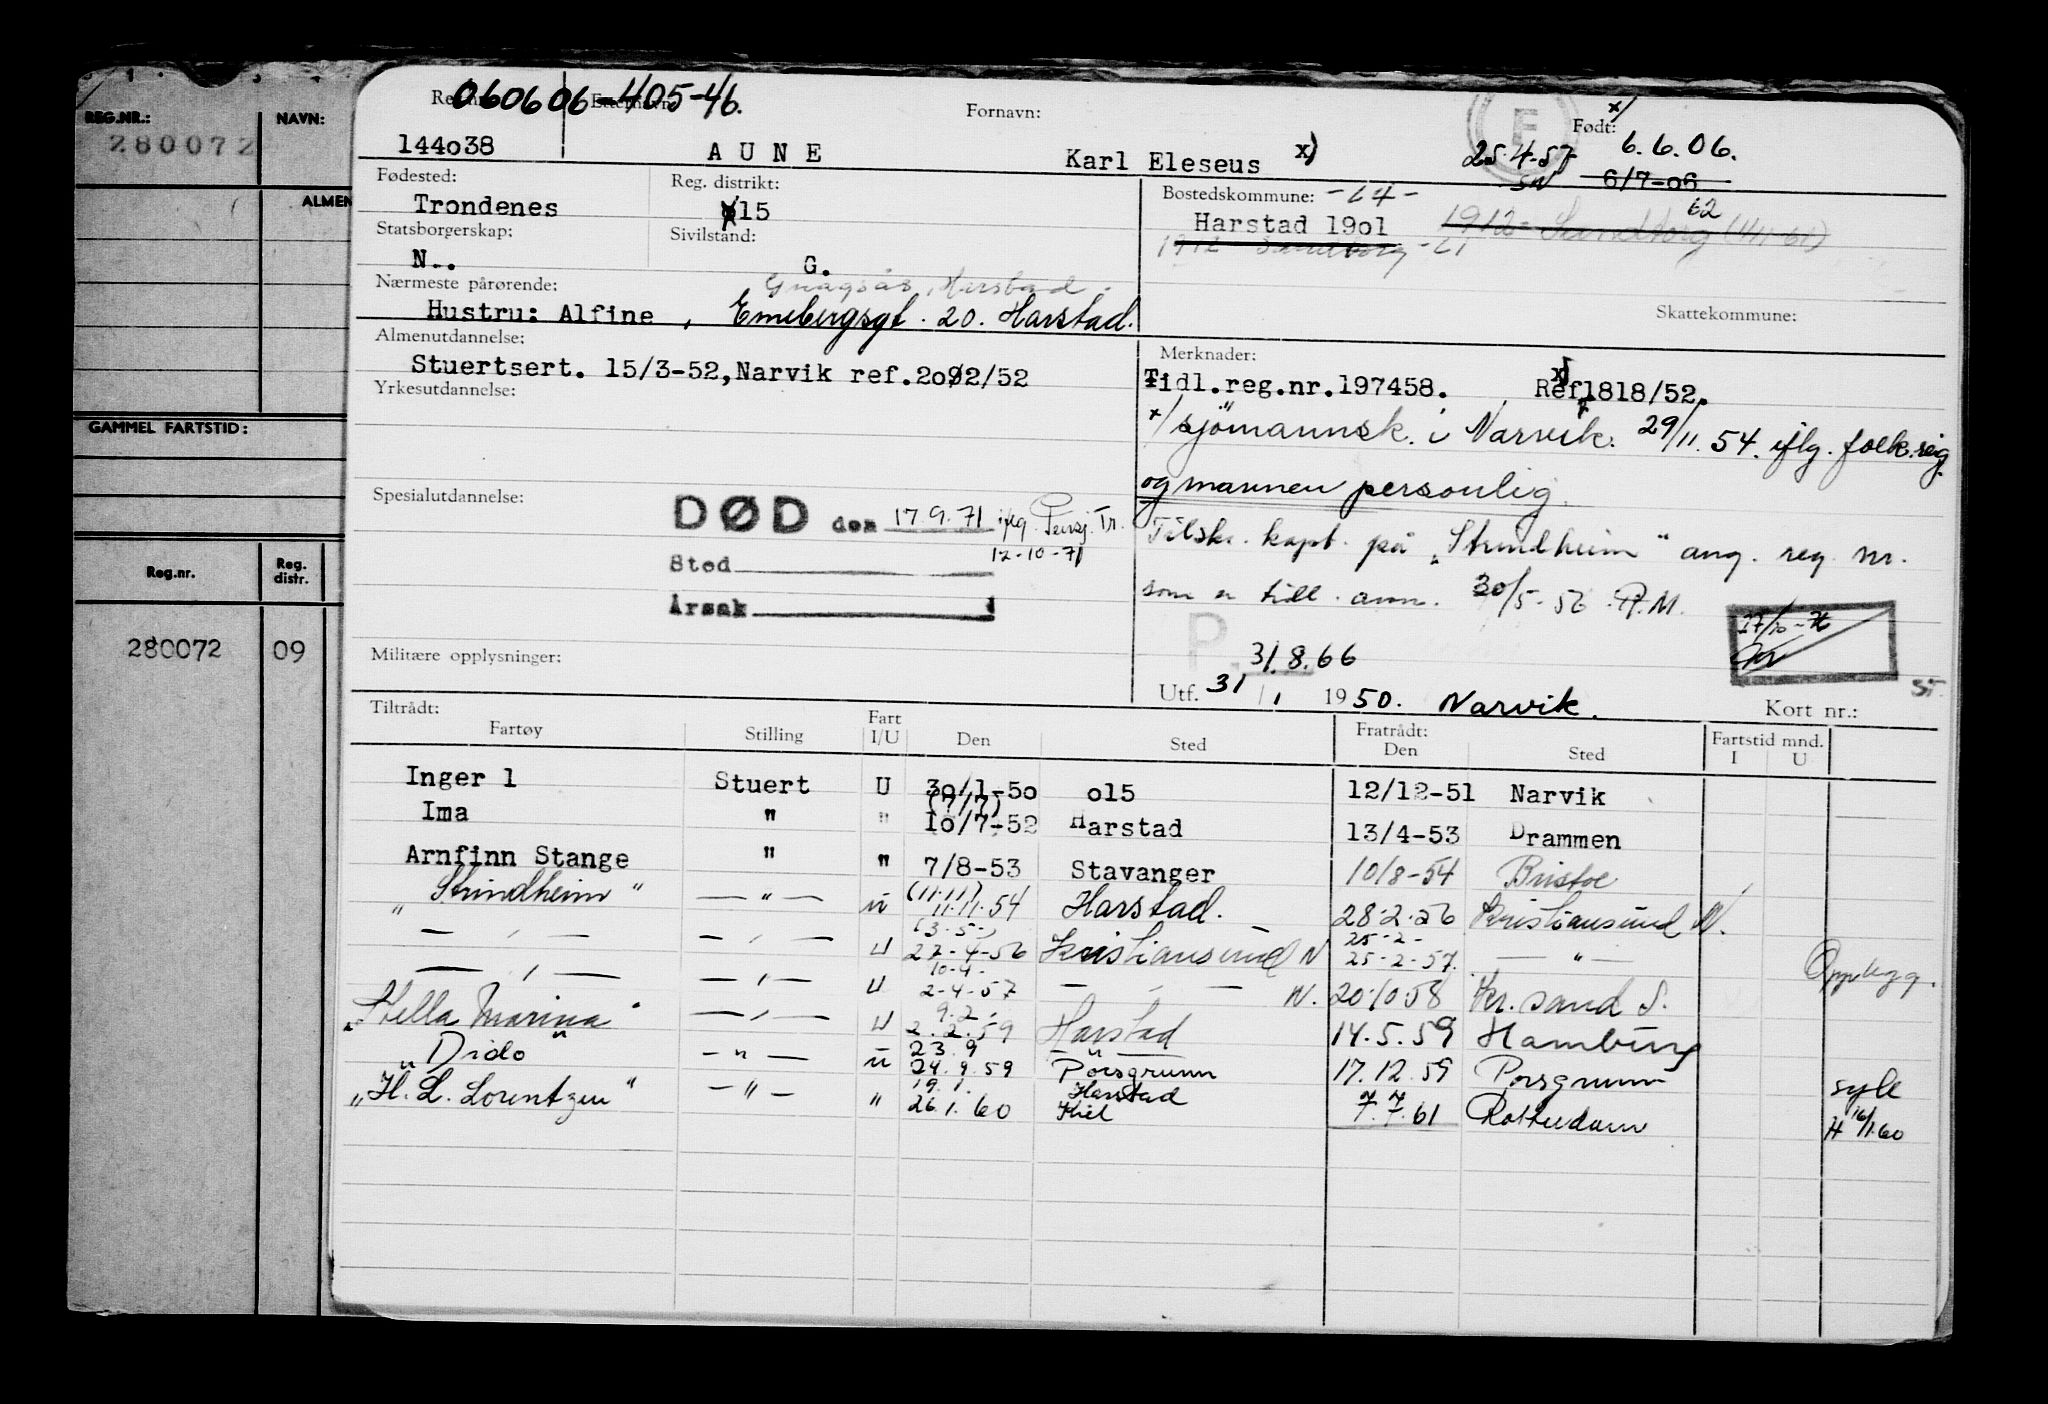 REG.NR.: NAVN:
280072
ALMEN
GAMMEL FARTSTID:
Reg.nr. Reg. distr.
280072 09
060606-405-46.
Fornavn: Født: x/
144o38 AUNE Karl Eleseus x) 25.4.57 6.6.06.
6/7-o6
Fødested: Reg. distrikt: Bostedskommune: -64-
Trondenes o15 Harstad 19o1 62
Statsborgerskap: Sivilstand:
N.. G.
Nærmeste pårørende: Harstad Skattekommune:
Hustru: Alfine , Emebergsgt. 20. Harstad.
Almenutdannelse: Merknader:
Stuertsert. 15/3-52,Narvik ref.2o02/52 Tidl.reg.nr.197458. x) Ref1818/52.
Yrkesutdannelse: x/ sjömannsk. i Narvik. 29/11.54. iflg. folk.reg.
og mannen personlig.
Spesialutdannelse: DØD den 17.9.71 iflg. Pensj. Tr.
12-10-71
Tilskr. kapt. på "Strindheim" ang. reg. nr.
Sted som er tidl. ann. 30/5-56 P.M.
Årsak
P. 31.8.66 27/10-76
Militære opplysninger:
Utf. 31/1 1950. Narvik. Kort nr.:
Tiltrådt: Fratrådt: Fartstid mnd.
Fartøy Stilling Fart I/U Den Sted Den Sted I U
Inger 1 Stuert U 3o/1-5o o15 12/12-51 Narvik
Ima " " (7/7) 1o/7-52 Harstad 13/4-53 Drammen
Arnfinn Stange " " 7/8-53 Stavanger 10/8-54 Bristol
"Strindheim" — " — u (11.11) 11.11.54 Harstad. 28.2.56 Kristiansund N.
— " — — " — U (3.5-) 27-4-56 Kristiansund N 25-2- 25-2-57. — " — Opplegg.
— " — — " — U 10-4- 2-4-57 — " — N. 20.10.58 Kr. sand S.
"Stella Marina" — " — U 9.2. 2.2.59 Harstad 14.5.59 Hamburg
"Dido" — " — u 23.9 24.9.59 — " — Porsgrunn 17.12.59 Porsgrunn syk
"H. L. Lorentzen" — " — " 19.1. 26.1.60 Harstad Kiel 7.7. 7.7.61 Rotterdam H 16/1.60